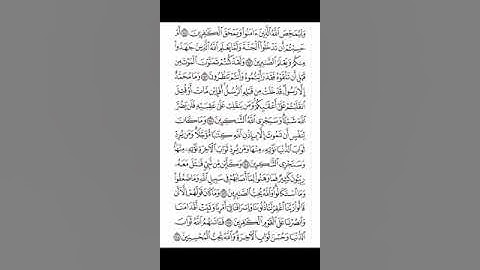 وَلِيُمَحِّصَ ٱللَّهُ ٱلَّذِينَ ءَامَنُوا۟ وَيَمْحَقَ ٱلْكَٰفِرِينَ ١٤١ أَمْ
حَسِبْتُمْ أَن تَدْخُلُوا۟ ٱلْجَنَّةَ وَلَمَّا يَعْلَمِ ٱللَّهُ ٱلَّذِينَ جَٰهَدُوا۟
مِنكُمْ وَيَعْلَمَ ٱلصَّٰبِرِينَ ١٤٢ وَلَقَدْ كُنتُمْ تَمَنَّوْنَ ٱلْمَوْتَ مِن
قَبْلِ أَن تَلْقَوْهُ فَقَدْ رَأَيْتُمُوهُ وَأَنتُمْ تَنظُرُونَ ١٤٣ وَمَا مُحَمَّدٌ
إِلَّا رَسُولٌ قَدْ خَلَتْ مِن قَبْلِهِ ٱلرُّسُلُ أَفَإِي۟ن مَّاتَ أَوْ قُتِلَ
ٱنقَلَبْتُمْ عَلَىٰٓ أَعْقَٰبِكُمْ وَمَن يَنقَلِبْ عَلَىٰ عَقِبَيْهِ فَلَن يَضُرَّ
ٱللَّهَ شَيْـًٔا وَسَيَجْزِى ٱللَّهُ ٱلشَّٰكِرِينَ ١٤٤ وَمَا كَانَ
لِنَفْسٍ أَن تَمُوتَ إِلَّا بِإِذْنِ ٱللَّهِ كِتَٰبًا مُّؤَجَّلًا وَمَن يُرِدْ
ثَوَابَ ٱلدُّنْيَا نُؤْتِهِۦ مِنْهَا وَمَن يُرِدْ ثَوَابَ ٱلْءَاخِرَةِ نُؤْتِهِۦ مِنْهَا
وَسَنَجْزِى ٱلشَّٰكِرِينَ ١٤٥ وَكَأَيِّن مِّن نَّبِىٍّ قَٰتَلَ مَعَهُۥ
رِبِّيُّونَ كَثِيرٌ فَمَا وَهَنُوا۟ لِمَآ أَصَابَهُمْ فِى سَبِيلِ ٱللَّهِ وَمَا ضَعُفُوا۟
وَمَا ٱسْتَكَانُوا۟ وَٱللَّهُ يُحِبُّ ٱلصَّٰبِرِينَ ١٤٦ وَمَا كَانَ قَوْلَهُمْ إِلَّآ أَن
قَالُوا۟ رَبَّنَا ٱغْفِرْ لَنَا ذُنُوبَنَا وَإِسْرَافَنَا فِىٓ أَمْرِنَا وَثَبِّتْ أَقْدَامَنَا
وَٱنصُرْنَا عَلَى ٱلْقَوْمِ ٱلْكَٰفِرِينَ ١٤٧ فَـَٔاتَىٰهُمُ ٱللَّهُ ثَوَابَ
ٱلدُّنْيَا وَحُسْنَ ثَوَابِ ٱلْءَاخِرَةِ وَٱللَّهُ يُحِبُّ ٱلْمُحْسِنِينَ ١٤٨